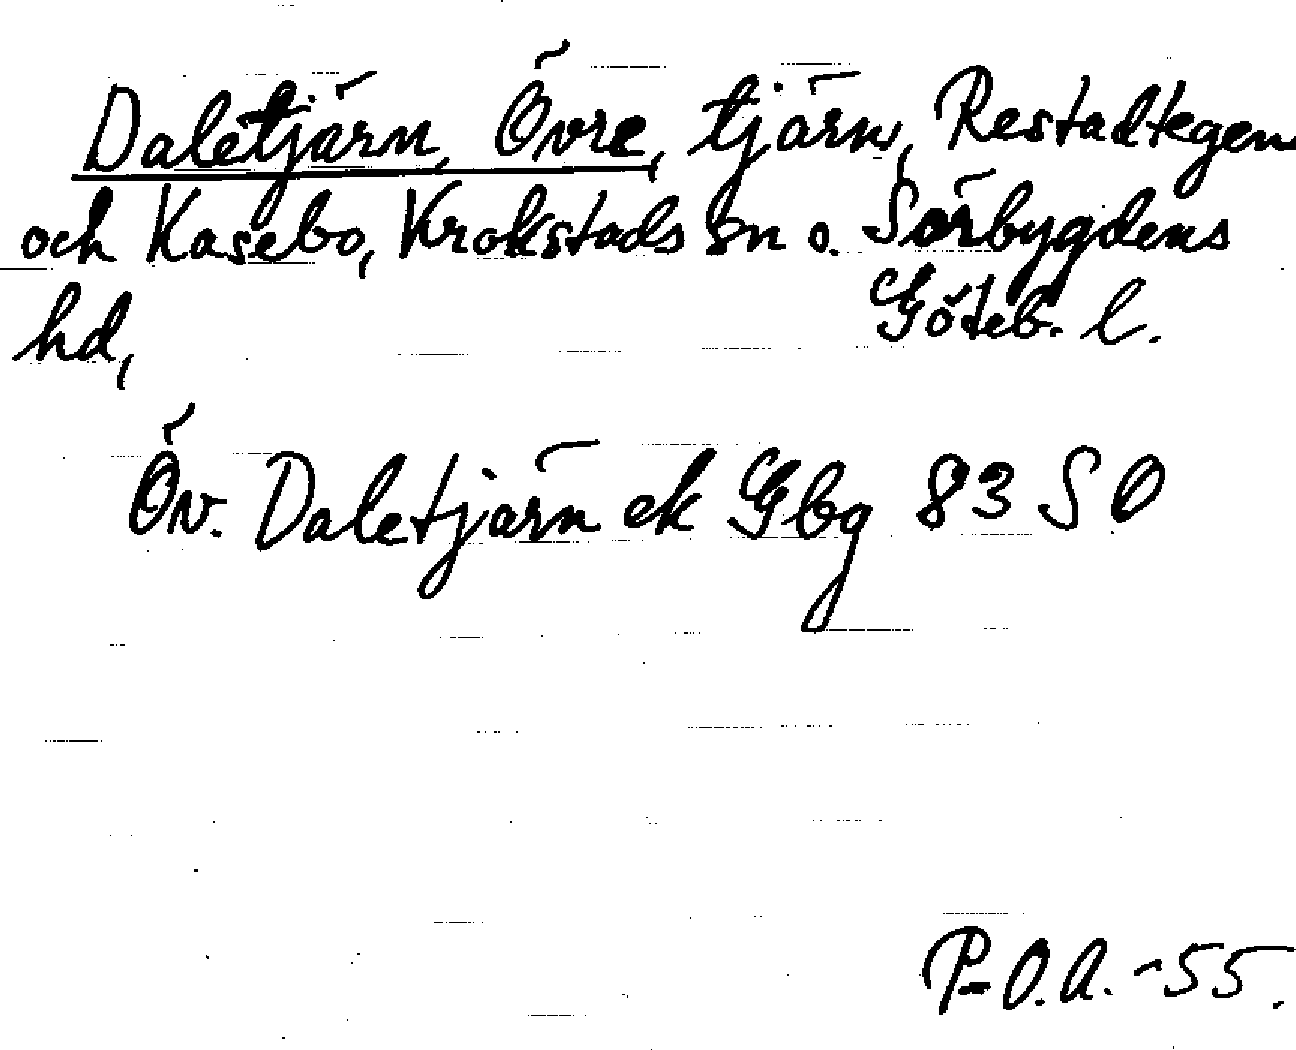 Daletjärn, Övre, tjärn, Restadtegen
och Kasebo, Krokstads sn o. Sörbygdens
hd, Göteb. l.
Öv. Daletjärn ek Gbg 83 SO
P-O.A. -55.